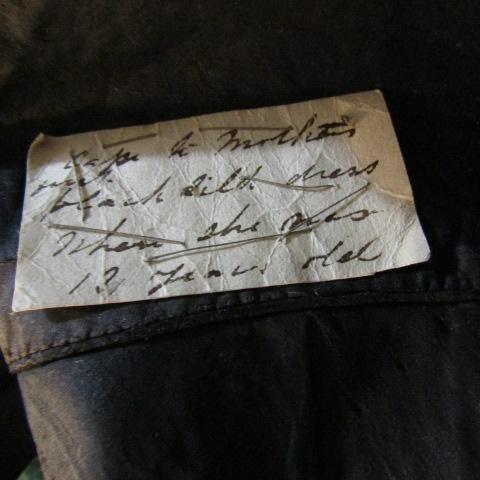 Cape to Mother's
black silk dress
When she was
13 years old